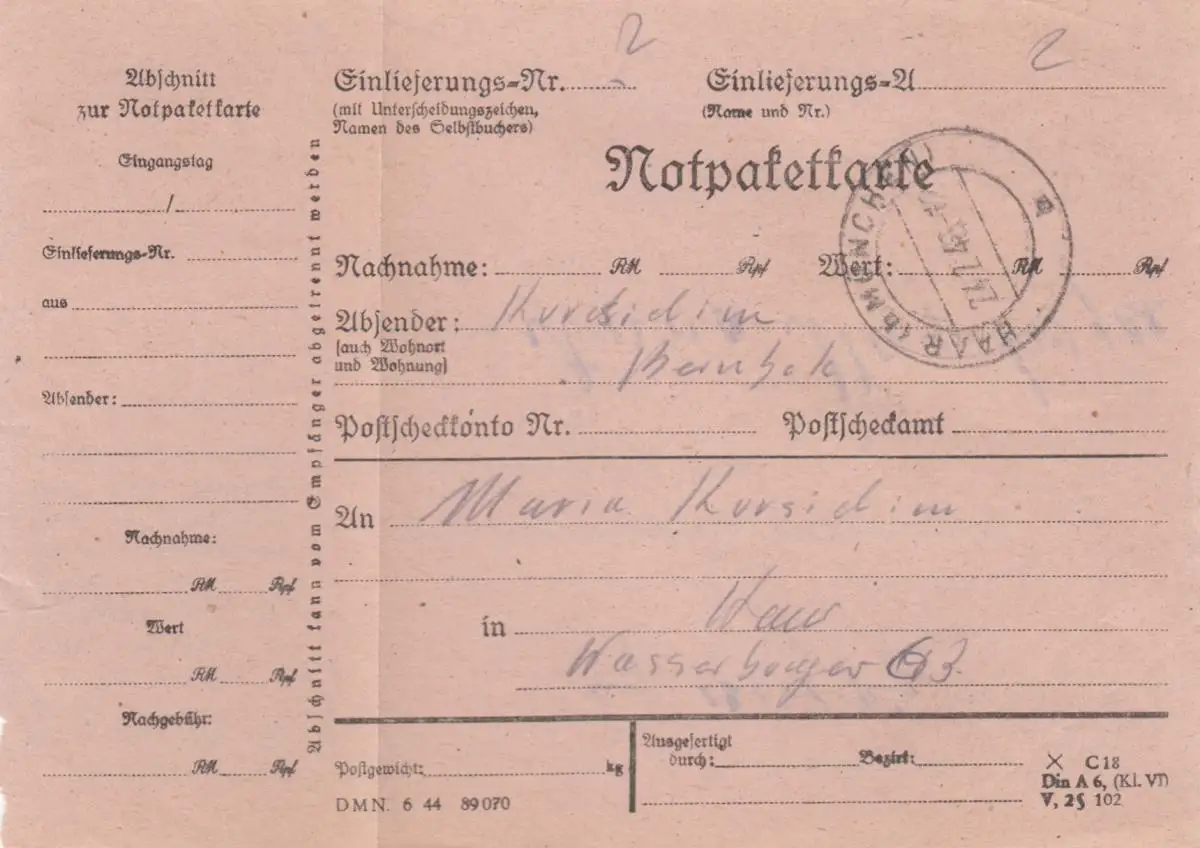 Abschnitt
zur Notpaketkarte
Eingangstag
/
Einlieferungs-Nr.
aus
Absender:
Nachnahme:
RM Rpf
Wert
RM Rpf
Nachgebühr:
RM Rpf
Abschnitt kann vom Empfänger abgetrennt werden
2
Einlieferungs-Nr.
(mit Unterscheidungszeichen,
Namen des Selbstbuchers)
2
Einlieferungs-A
(Name und Nr.)
Notpaketkarte
HAAR (b MÜNCHEN)
Nachnahme: RM Rpf Wert: RM Rpf
Absender:
(auch Wohnort
und Wohnung)
Postscheckkonto Nr. Postscheckamt
An Maria Korsidim
in Haar
Wasserburger 63
Postgewicht: kg
Ausgefertigt
durch: Bezirk:
DMN. 6 44 89070
× C 18
Din A 6, (Kl. VI)
V, 2 § 102